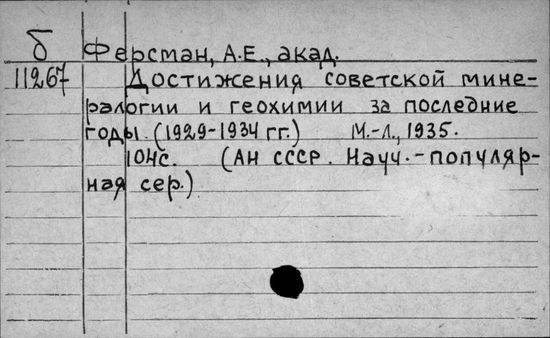 б Ферсман, А.Е., акад.
11267 Достижения советской мине-
ралогии и геохимии за последние
годы. (1929-1934 гг.) М.-Л., 1935.
104с. (АН СССР. Науч.-популяр-
ная сер.)